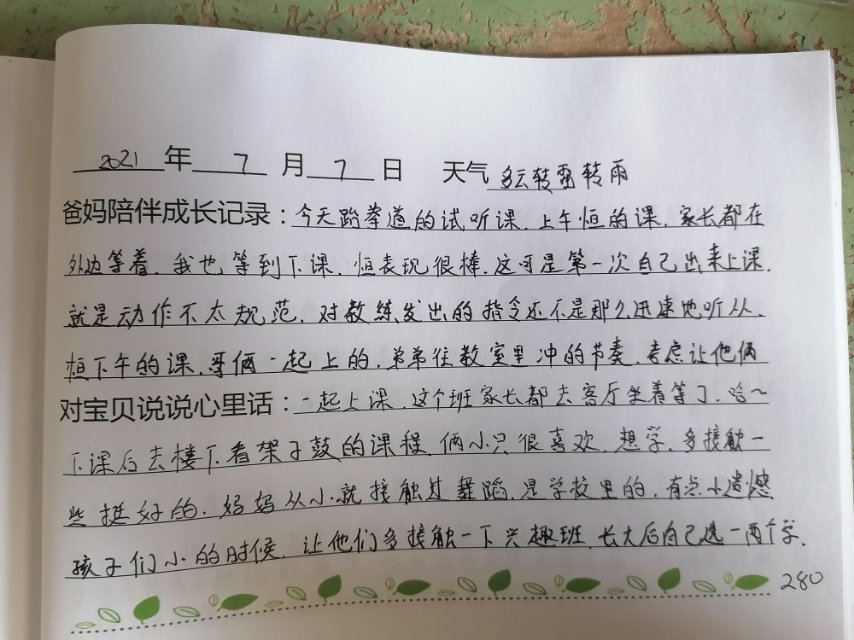 2021 年 7 月 7 日 天气 多云转雷转雨
爸妈陪伴成长记录：今天跆拳道的试听课，上午恒的课，家长都在
外边等着，我也等到下课，恒表现很棒，这可是第一次自己出来上课，
就是动作不太规范，对教练发出的指令还不是那么迅速地听从，
桓下午的课，哥俩一起上的，弟弟往教室里冲的节奏，考虑让他俩
对宝贝说说心里话：一起上课，这个班家长都去客厅坐着等了，哈～
下课后去楼下看架子鼓的课程，俩小只很喜欢，想学，多接触一
些挺好的，妈妈从小就接触过舞蹈，是学校里的，有点小遗憾
孩子们小的时候，让他们多接触一下兴趣班，长大后自己选一两个学，
280